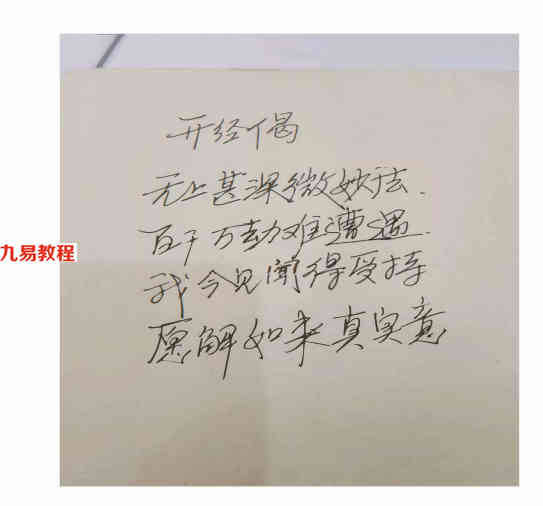 开经偈
无上甚深微妙法.
百千万劫难遭遇.
九易教程
我今见闻得受持
愿解如来真实意